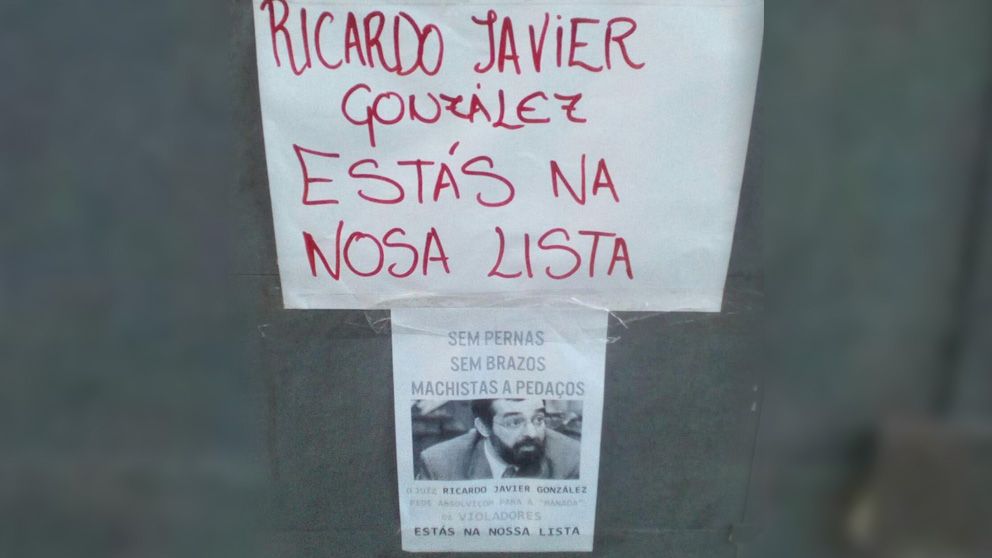 RICARDO JAVIER
GONZÁLEZ
ESTÁS NA
NOSA LISTA
SEM PERNAS
SEM BRAZOS
MACHISTAS A PEDAÇOS
O JUÍZ RICARDO JAVIER GONZÁLEZ
PEDE ABSOLVIÇOM PARA A "MANADA"
DE VIOLADORES
ESTÁS NA NOSSA LISTA